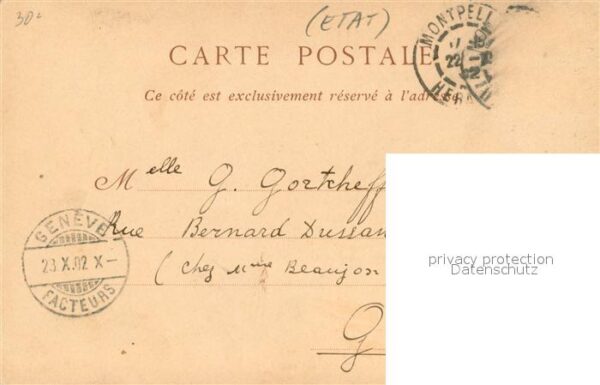 30-
(ETAT)
MONTPELL
22
HER
CARTE POSTALE
Ce côté est exclusivement réservé à l'adresse
Melle G. Gortcheff
Rue Bernard Dussan
(chez Mme Beaujon
G
GENÈVE
23.X.02 X-
FACTEURS
privacy protection
Datenschutz